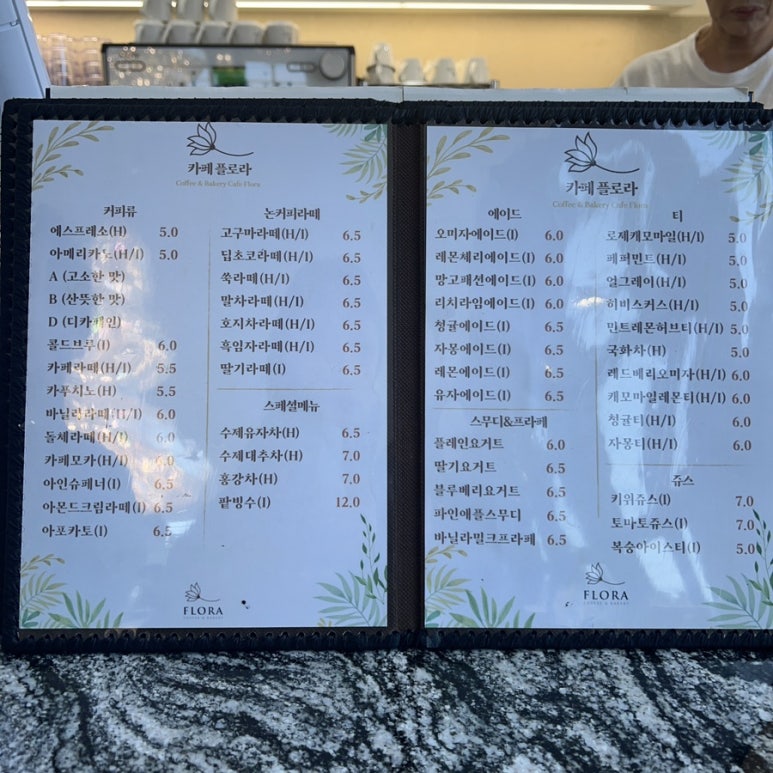 카페 플로라
Coffee & Bakery Cafe Flora
커피류
에스프레소(H) 5.0
아메리카노(H/I) 5.0
A (고소한 맛)
B (산뜻한 맛)
D (디카페인)
콜드브루(I) 6.0
카페라떼(H/I) 5.5
카푸치노(H) 5.5
바닐라라떼(H/I) 6.0
돌체라떼(H/I) 6.0
카페모카(H/I) 6.0
아인슈페너(I) 6.5
아몬드크림라떼(I) 6.5
아포카토(I) 6.5
논커피라떼
고구마라떼(H/I) 6.5
딥초코라떼(H/I) 6.5
쑥라떼(H/I) 6.5
말차라떼(H/I) 6.5
호지차라떼(H/I) 6.5
흑임자라떼(H/I) 6.5
딸기라떼(I) 6.5
스페셜메뉴
수제유자차(H) 6.5
수제대추차(H) 7.0
홍강차(H) 7.0
팥빙수(I) 12.0
FLORA
COFFEE & BAKERY
카페 플로라
Coffee & Bakery Cafe Flora
에이드
오미자에이드(I) 6.0
레몬체리에이드(I) 6.0
망고패션에이드(I) 6.0
리치라임에이드(I) 6.0
청귤에이드(I) 6.5
자몽에이드(I) 6.5
레몬에이드(I) 6.5
유자에이드(I) 6.5
스무디&프라페
플레인요거트 6.0
딸기요거트 6.5
블루베리요거트 6.5
파인애플스무디 6.5
바닐라밀크프라페 6.5
티
로제캐모마일(H/I) 5.0
페퍼민트(H/I) 5.0
얼그레이(H/I) 5.0
히비스커스(H/I) 5.0
민트레몬허브티(H/I) 5.0
국화차(H) 5.0
레드베리오미자(H/I) 6.0
캐모마일레몬티(H/I) 6.0
청귤티(H/I) 6.0
자몽티(H/I) 6.0
쥬스
키위쥬스(I) 7.0
토마토쥬스(I) 7.0
복숭아아이스티(I) 5.0
FLORA
COFFEE & BAKERY